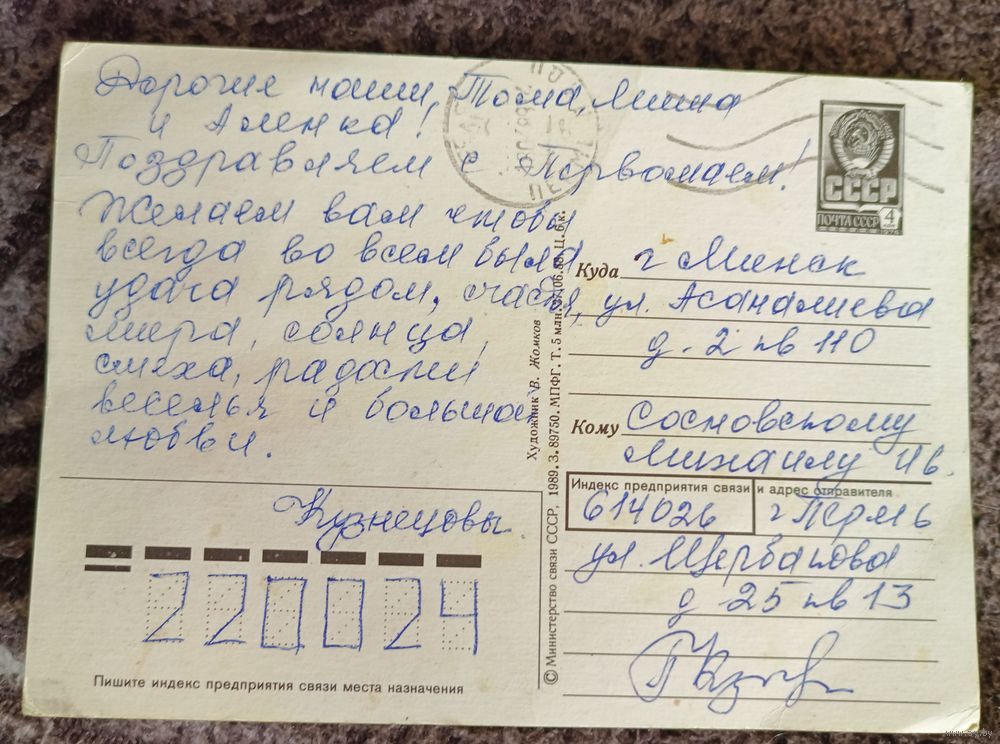 Дорогие наши, Тома, Миша
и Аленка!
Поздравляем с Первомаем!
Желаем вам чтобы
всегда во всем была
удача рядом, счастья,
мира, солнца,
смеха, радости
веселья и большой
любви.
Кузнецовы.
220024
Пишите индекс предприятия связи места назначения
© Министерство связи СССР, 1989. З. 89750. МПФГ. Т. 5 млн.
Художник В. Жомков
СССР
ПОЧТА СССР
4
Куда г Минск
ул. Асаналиева
д. 2 кв 110
Кому Сосновскому
Михаилу Ив.
Индекс предприятия связи и адрес отправителя
614026 г Пермь
ул. Щербакова
д 25 кв 13